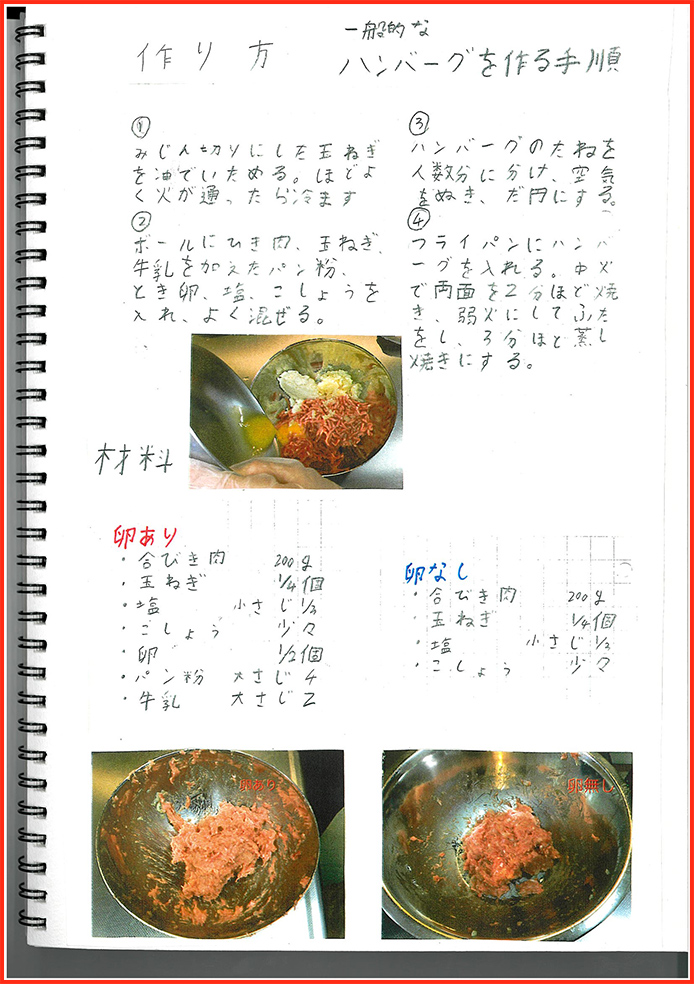 作り方
一般的な
ハンバーグを作る手順
①
みじん切りにした玉ねぎ
を油でいためる。ほどよ
く火が通ったら冷ます
②
ボールにひき肉、玉ねぎ、
牛乳を加えたパン粉、
とき卵、塩、こしょうを
入れ、よく混ぜる。
③
ハンバーグのたねを
人数分に分け、空気
をぬき、だ円にする。
④
フライパンにハンバ
ーグを入れる。中火
で両面を2分ほど焼
き、弱火にしてふた
をし、3分ほど蒸し
焼きにする。
材料
卵あり
・合びき肉 200g
・玉ねぎ 1/4個
・塩 小さじ1/3
・こしょう 少々
・卵 1/2個
・パン粉 大さじ4
・牛乳 大さじ2
卵なし
・合びき肉 200g
・玉ねぎ 1/4個
・塩 小さじ1/3
・こしょう 少々
卵あり
卵無し